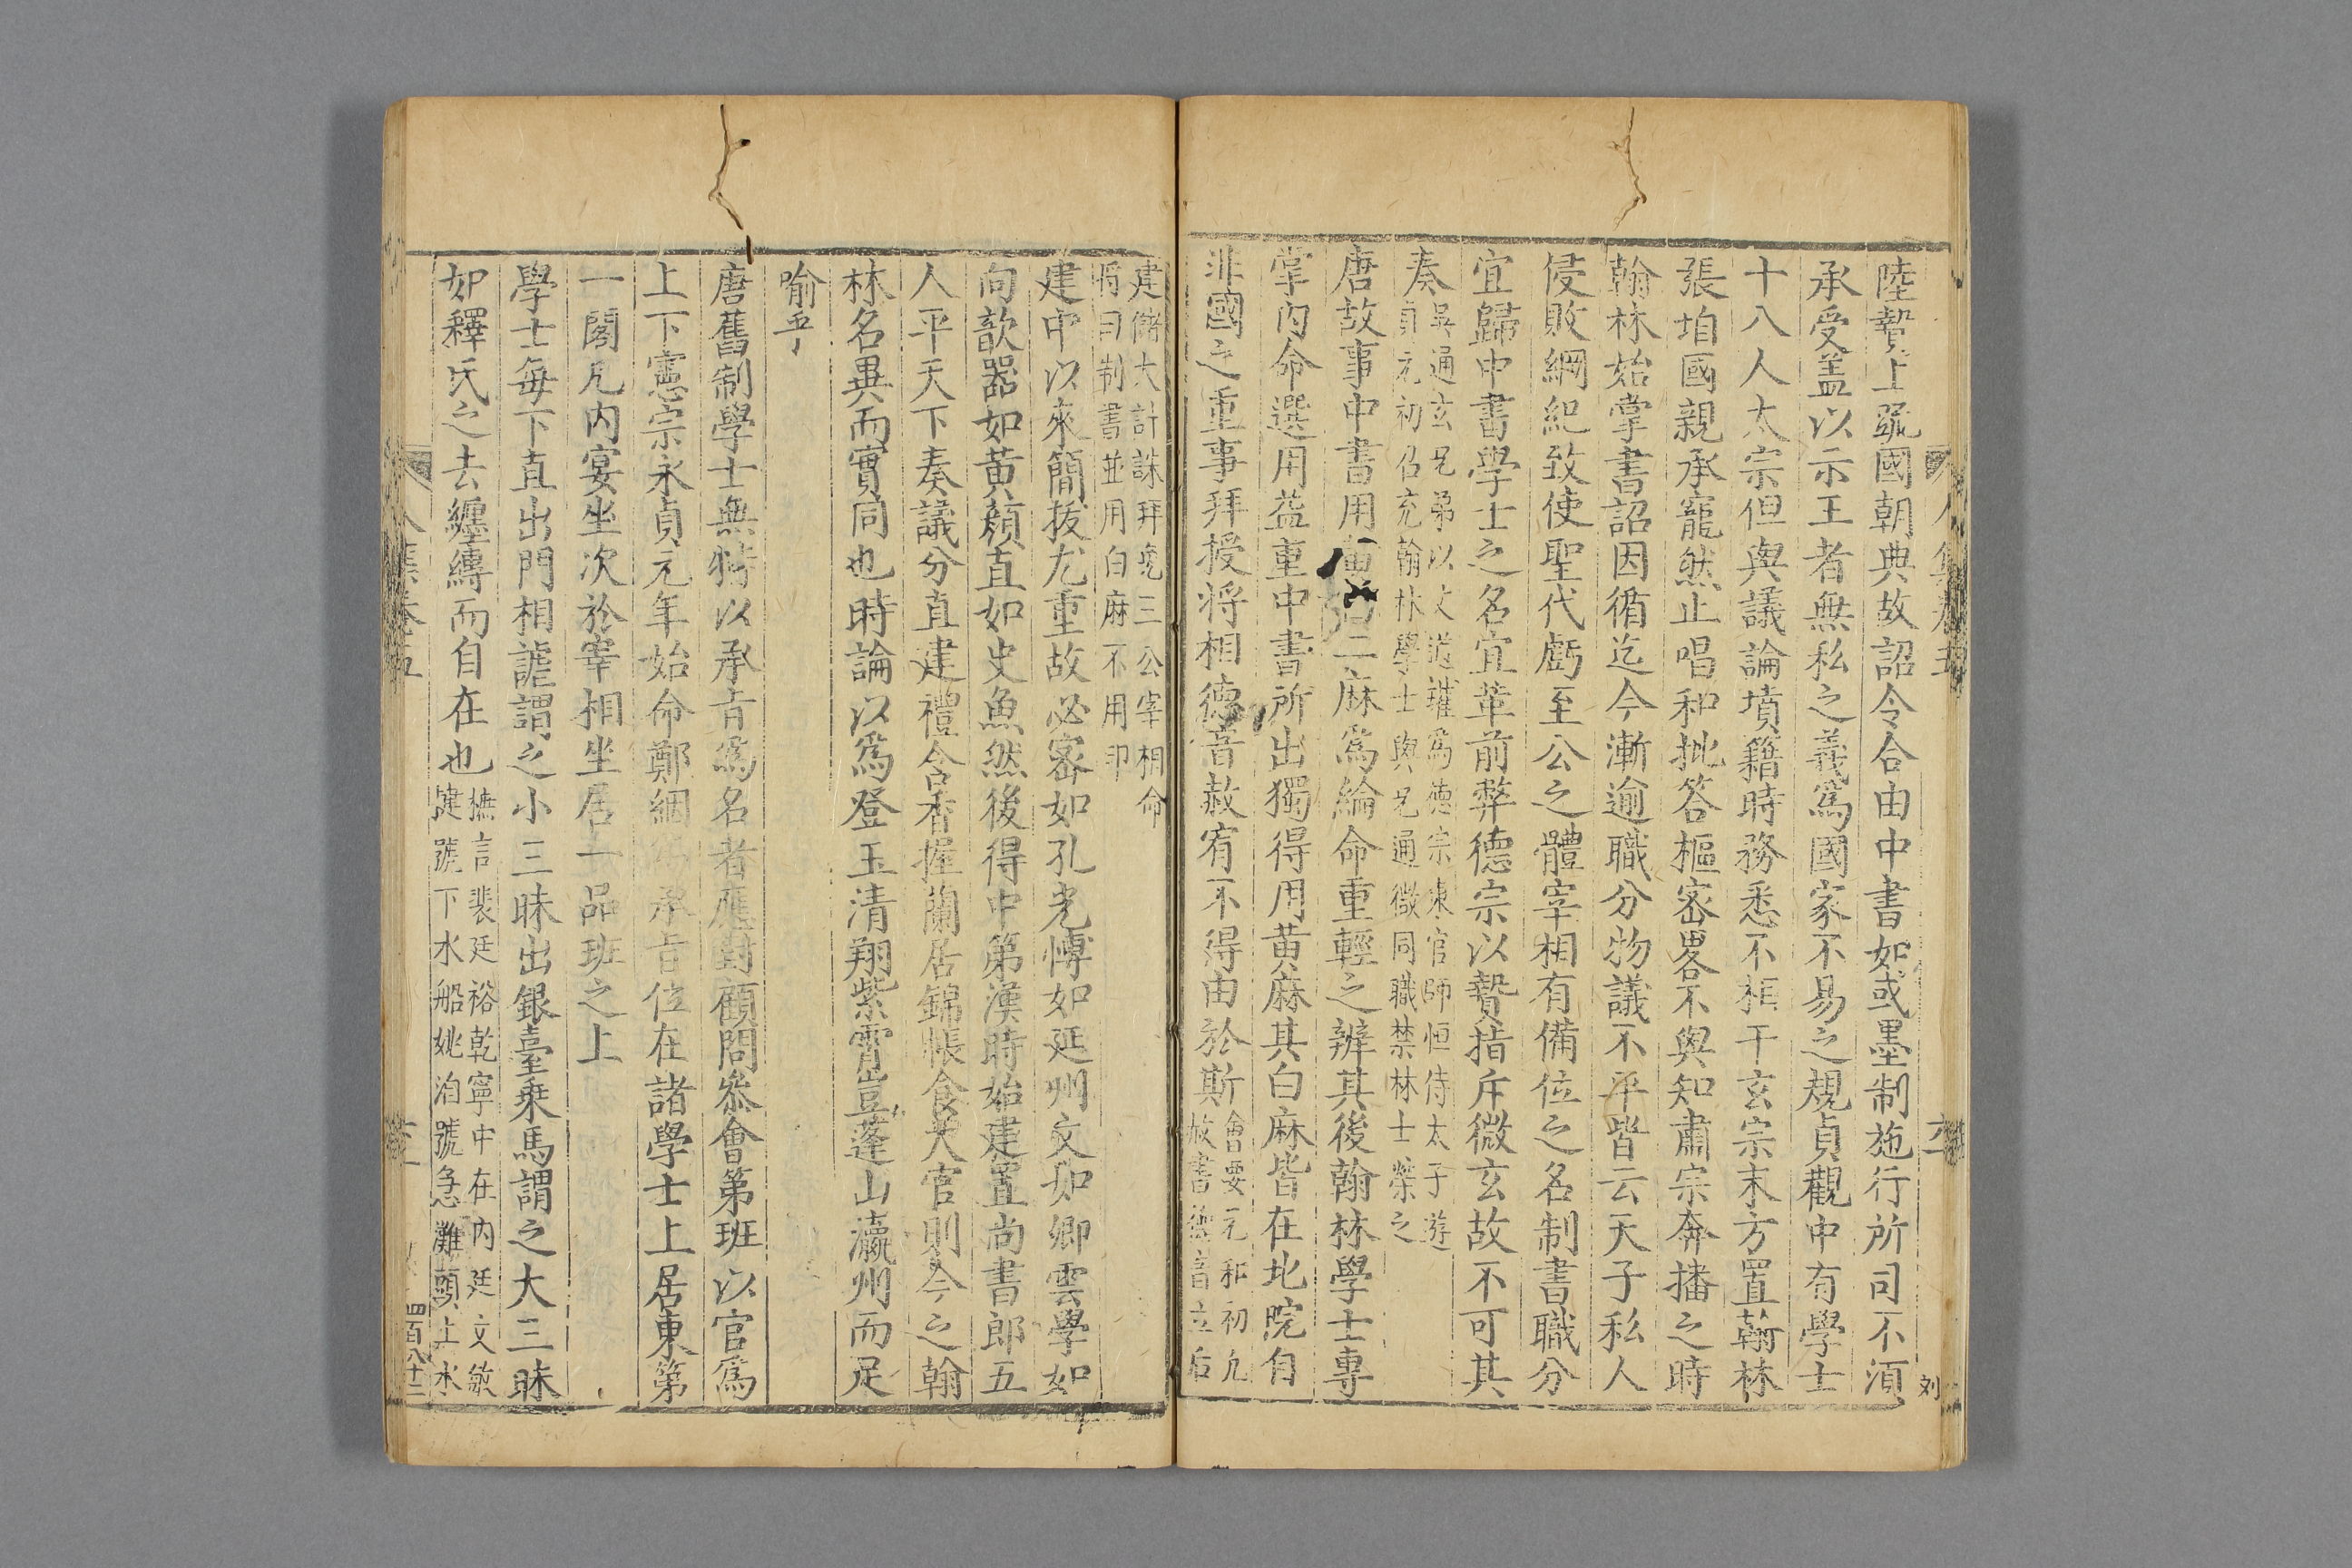 陸贄上疏國朝典故詔令合由中書如或墨制施行所司不須
承受盖以示王者無私之義爲國家不易之規貞觀中有學士
十八人太宗但與議論墳籍時務悉不相干玄宗末方置翰林
張垍國親承寵然止唱和批答樞宻畧不與知肅宗奔播之時
翰林始掌書詔因循迄今漸逾職分物議不平皆云天子私人
侵敗綱紀致使聖代虧至公之體宰相有備位之名制書職分
宜歸中書學士之名宜革前弊德宗以贄指斥微玄故不可其
奏
吳通玄兄弟以文 爲德宗東官師恒侍太子遊
貞元初召充翰林學士與兄通微同職禁林士榮之
唐故事中書用黄 二麻爲綸命重輕之辨其後翰林學士專
掌内命選用益重中書所出獨得用黄麻其白麻皆在北院自
非國之重事拜授將相德音赦宥不得由於斯
會要元和初凡
赦書德音立后
建儲大計誅拜免三公宰相命
將曰制書並用白麻不用印
建中以來簡拔尤重故必宻如孔光愽如延州文如卿雲學如
向歆器如黄頳直如史魚然後得中第漢時始建置尚書郎五
人平天下奏議分直建禮含香握蘭居錦帳食大官則今之翰
林名異而實同也時論以爲登玉清翔紫霄豈蓬山瀛州而足
喻乎
唐舊制學士無特以承旨爲名者應對顧問叅會第班以官爲
上下憲宗永貞元年始命鄭絪 承旨位在諸學士上居東第
一閣凡内宴坐次於宰相坐居一品班之上
學士每下直出門相謔謂之小三昧出銀臺乗馬謂之大三昧
如釋氏之去纏縳而自在也
摭言裴廷裕乾寧中在内廷文敏
㨗號下水船姚洎號急灘頭上水
集卷五
四百八十二
刘